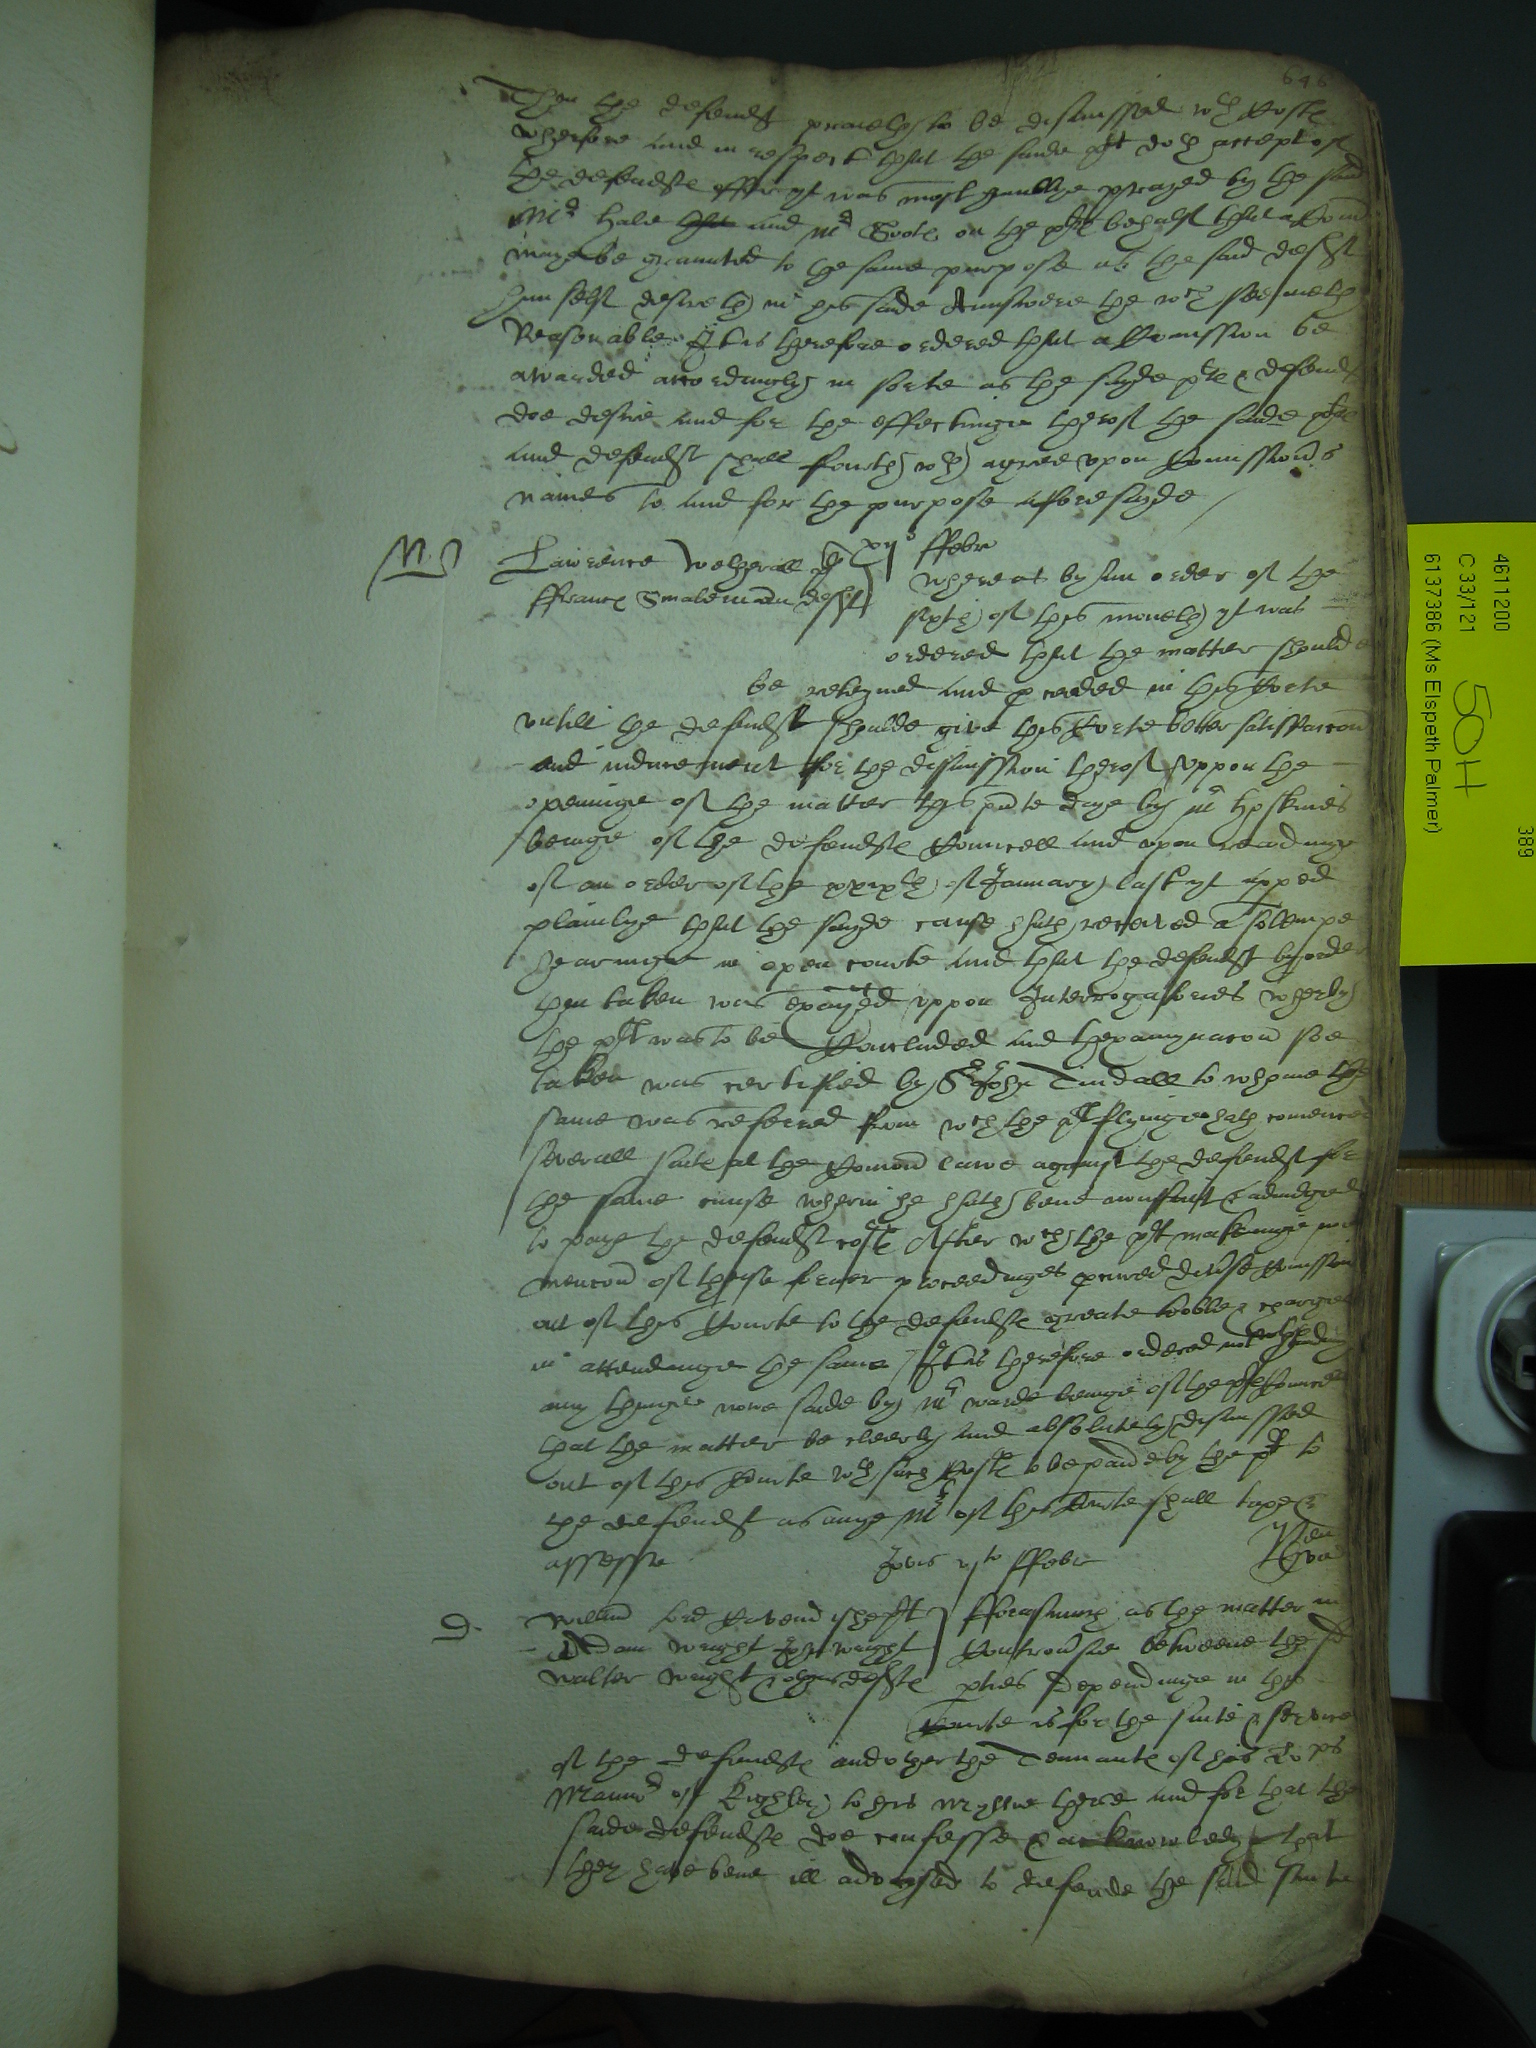 646
Then the defendt prayeth to be dismissed wth Costs
wherfore and in respect that the saide plt doth accept of
the defendts offer yt was most humblye prayed by the said
Mr Hale and Mr Scott on the plts behalf that a Comn
maye be graunted to the same purpose as the said deft
him self desireth in his saide Aunswere the wch seemeth
Reasonable It is therefore ordered that a Comission be
awarded accordingly in sorte as the sayde plts & defendts
doe desire and for the effectinge therof the saide plts
and defendt shall fourthwth agree upon Comissionrs
names to and for the purpose aforesayde
Lawrence Wetherall plt
ffraunc Smaleman deft
xijo ffebr
Whereas by an order of the
sixth of this moneth yt was
ordered that the matter should
be reteyned and proceeded in this Corte
untill the defendt shoulde give this Corte better satisfaccon
and inducement for the dismission therof Uppon the
openinge of the matter this pnte daye by Mr Hoskins
beinge of the defendts Councell and upon readinge
of an order of the xxixth of January last yt appeed
plainlye that the sayde cause hath received a sollempe
hearinge in open courte and that the defendt by order
then taken was exaied uppon Interrogatories wherby
the plt was to be Concluded and thexaminacon soe
taken was certified by Sr John Tindall to whome the
same was referred from wch the plt flyinge hath comenced
severall suits at the Comon lawe against the defendt for
the same cause wherin he hath bene nonsuit & adiudged
to paye the defendt costs After wch the plt makinge noe
mencon of theise former proceedinges procured divse Comissions
out of this Courte to the defendts greate troble & charges
in attendinge the same It is therefore ordered notwthstanding
any thinge nowe saide by Mr Warde beinge of the plts Councell
that the matter be cleerly and absolutely dismissed
out of this Courte wth such Costs to be paide by the plt to
the defendt as anye Mr of this Courte shall taxe &
assesse
Jovis vto ffebr
Willm lord Cavendishe plt
Adam Wright Wright
Walter Wright & others defts
fforasmuch as the matter in
Controvsie betweene the sd
pties dependinge in this
Courte is for the suite & service
of the defendts and other the Tennants of his Lops
Mannor of Kighley to his Mylne there and for that the
saide defendts doe confesse & acknowledge that
they have bene ill advysed to defende the said suite
4611200
C 33/121
6137386 (Ms Elspeth Palmer)
50H
389